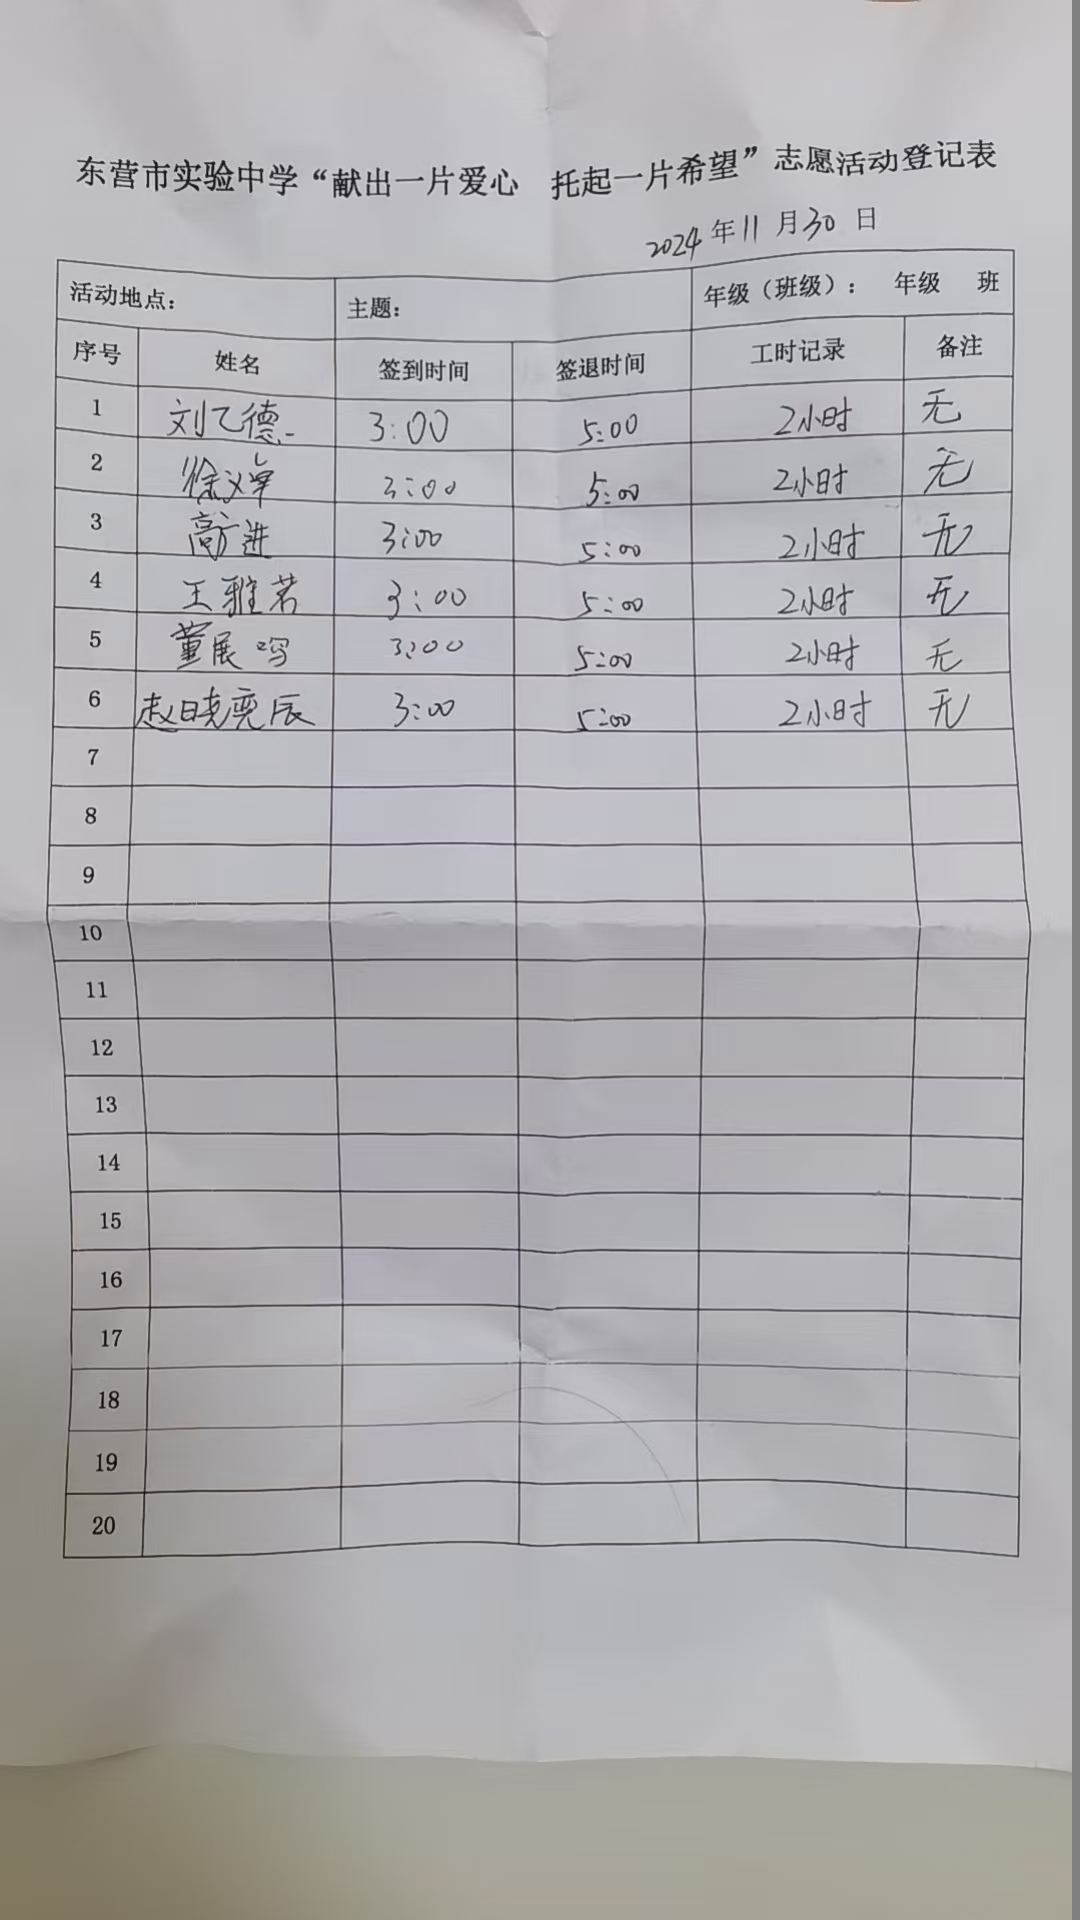 东营市实验中学“献出一片爱心 托起一片希望”志愿活动登记表
2024年11月30日
活动地点： 主题： 年级（班级）： 年级 班
序号 姓名 签到时间 签退时间 工时记录 备注
1 刘乙德 3:00 5:00 2小时 无
2 徐义 3:00 5:00 2小时 无
3 高广进 3:00 5:00 2小时 无
4 王雅若 3:00 5:00 2小时 无
5 董展鸣 3:00 5:00 2小时 无
6 赵晓奕辰 3:00 5:00 2小时 无
7
8
9
10
11
12
13
14
15
16
17
18
19
20